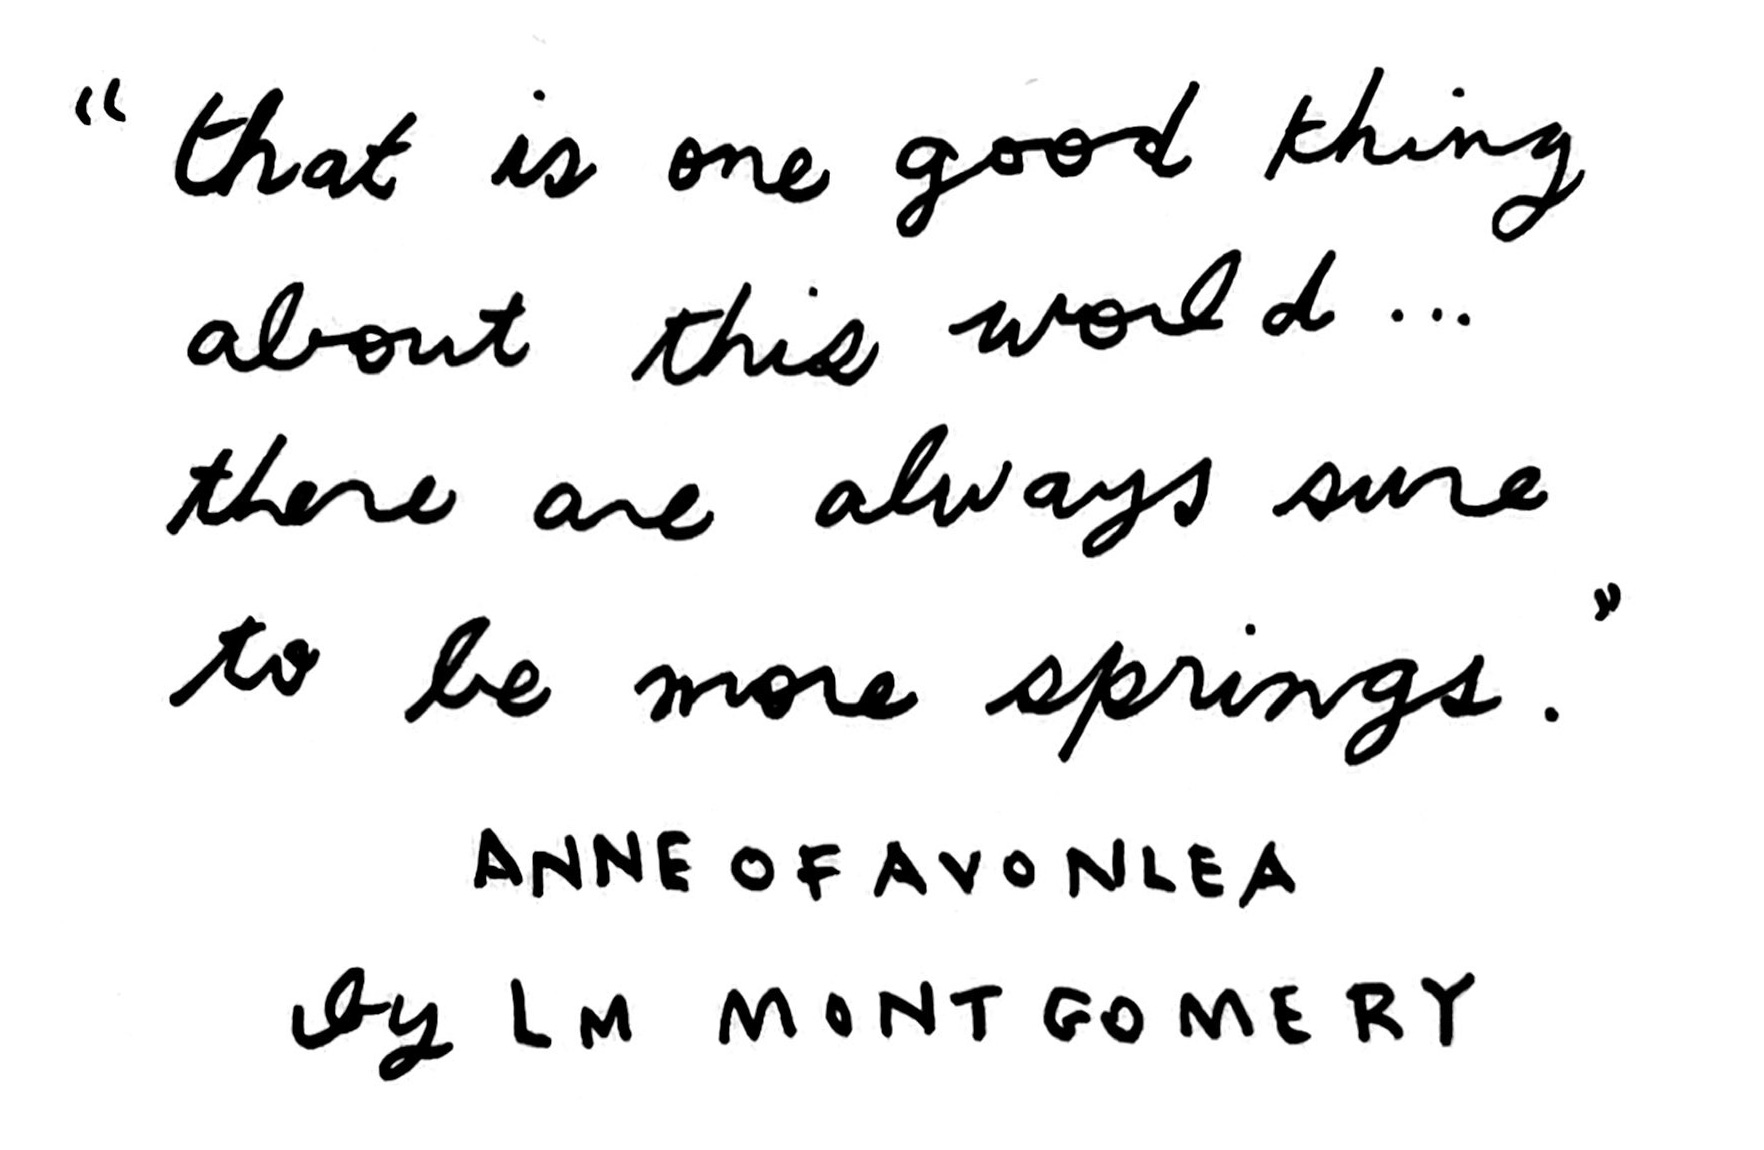 “that is one good thing
about this world...
there are always sure
to be more springs.”
ANNE OF AVONLEA
by LM MONTGOMERY